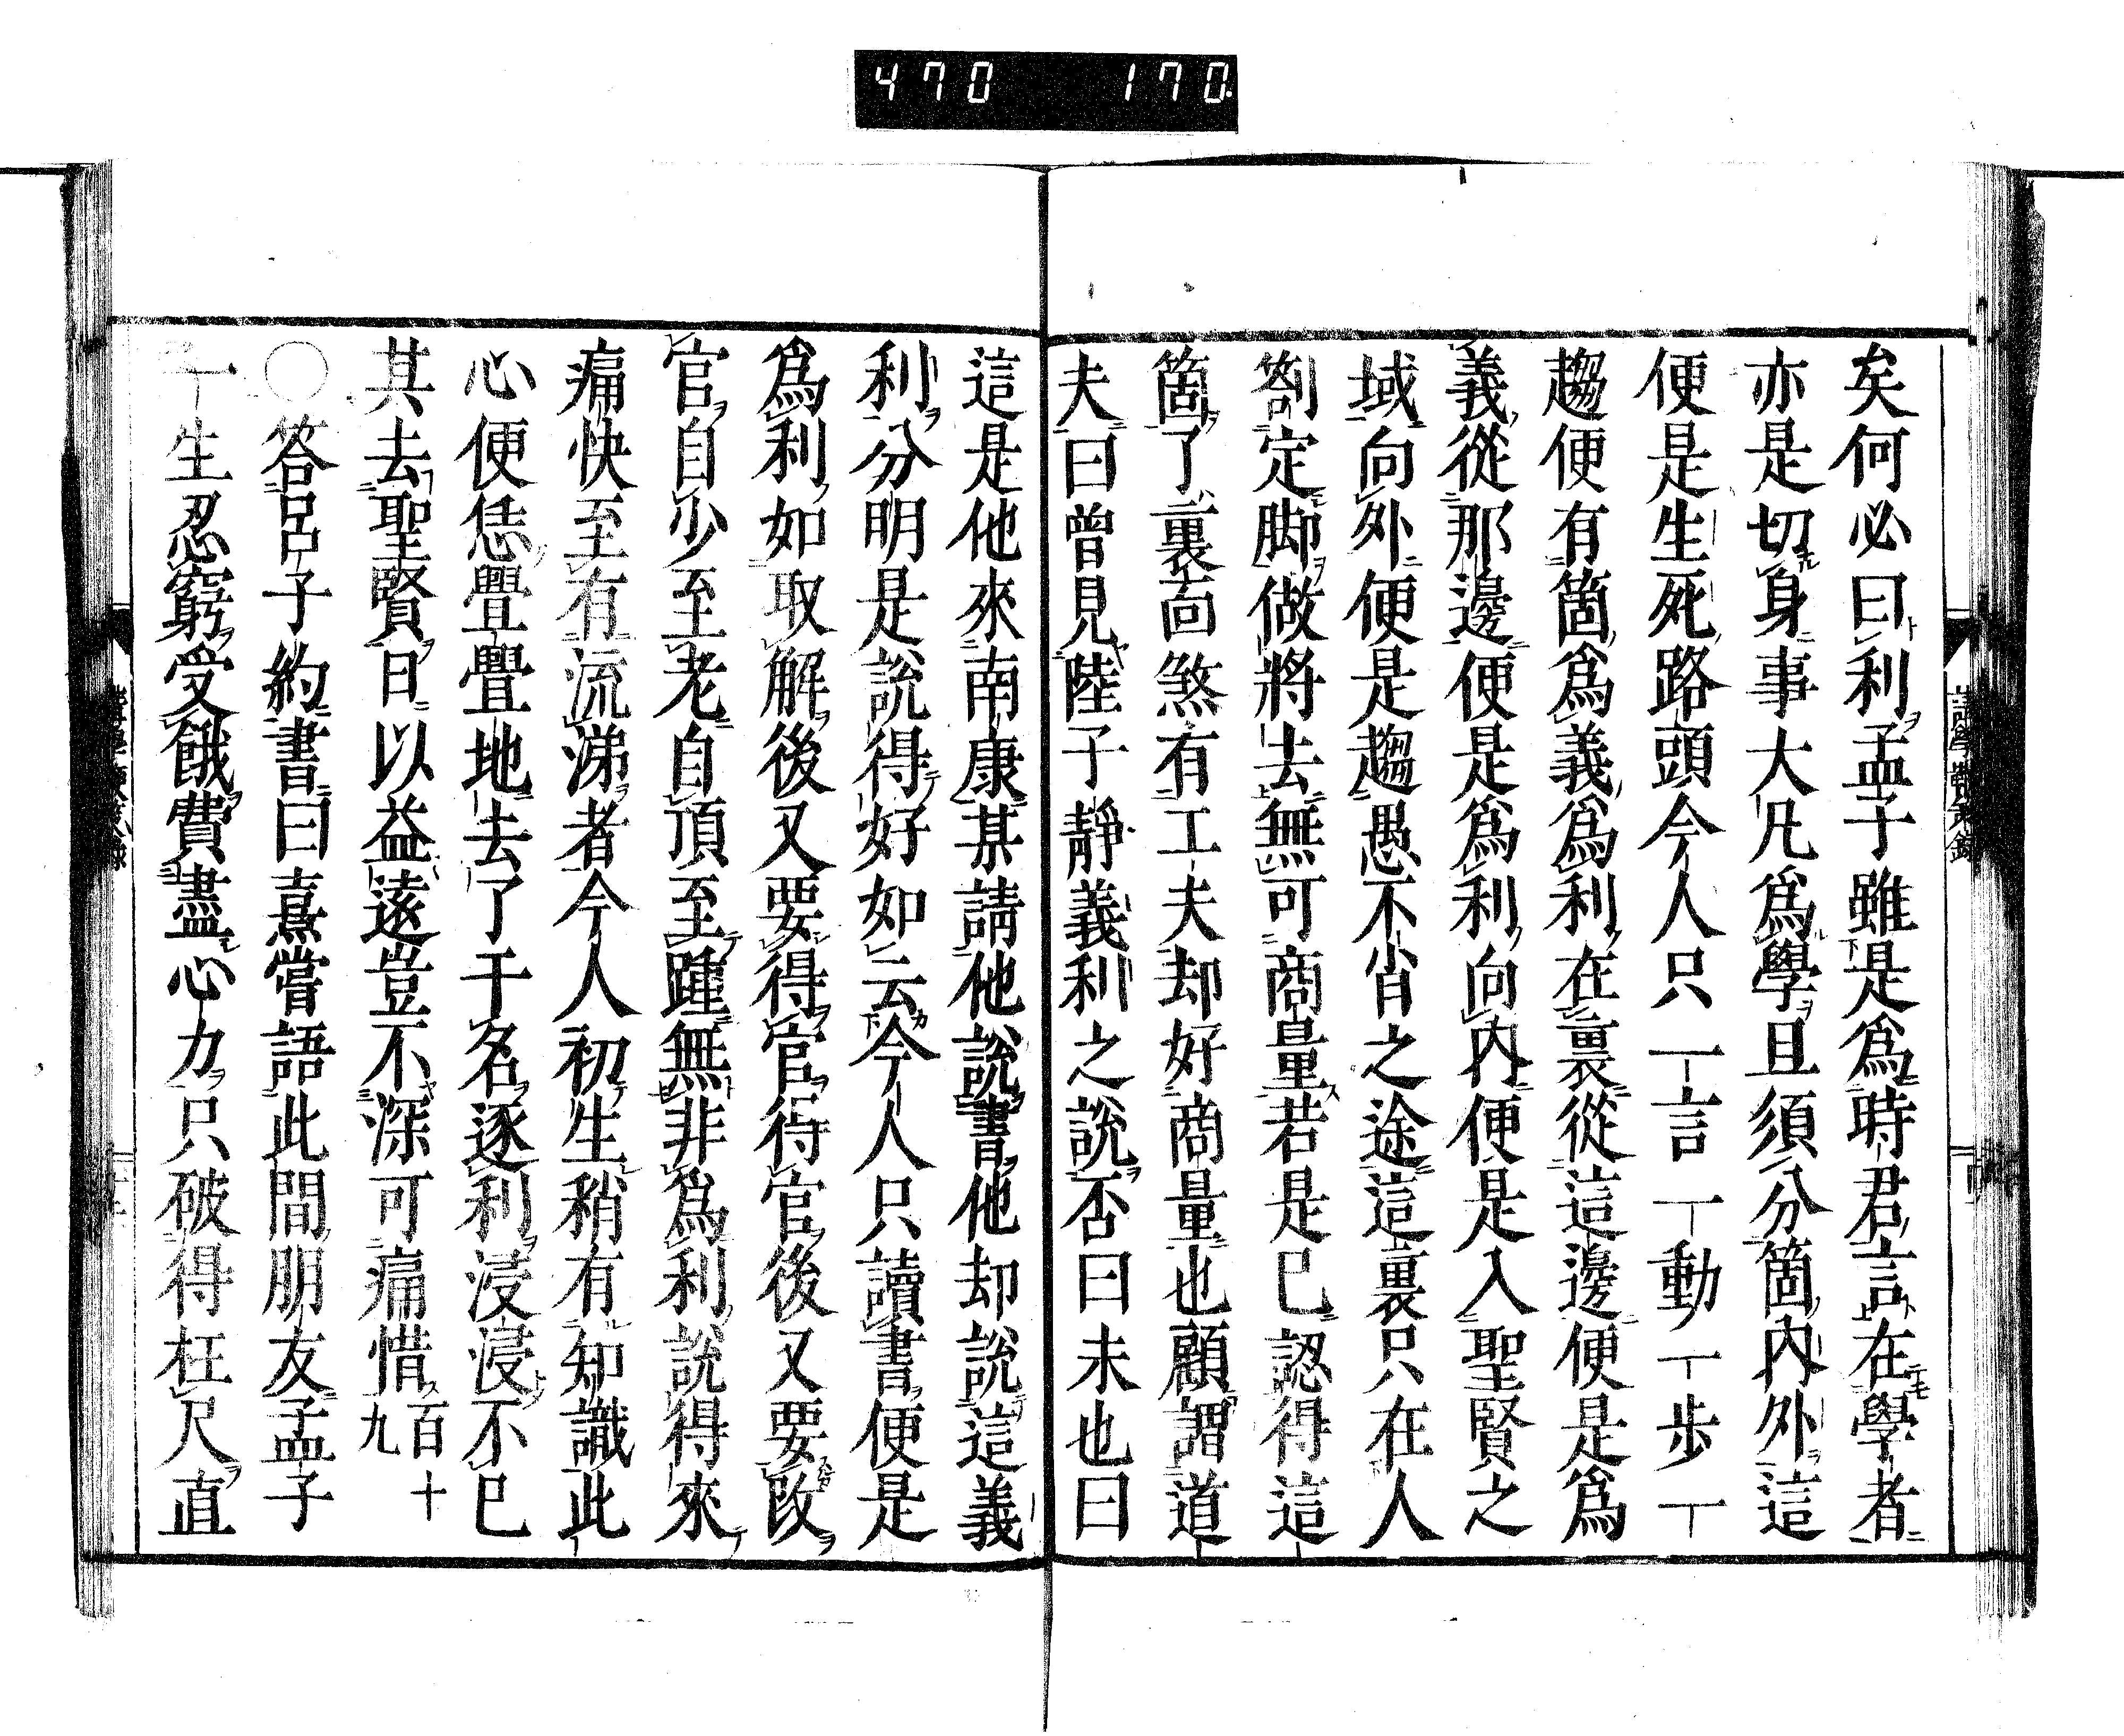 470 170
矣何必曰利孟子雖是爲時君言在學者
亦是切身事大凡爲學且須分箇內外這
便是生死路頭今人只一言一動一步一
趨便有箇爲義爲利在裏從這邊便是爲
義從那邊便是爲利向內便是入聖賢之
域向外便是趨愚不肖之途這裏只在人
劄定脚做將去無可商量若是已認得這
箇了裏面煞有工夫却好商量也顧謂道
夫曰曾見陸子靜義利之說否曰未也曰
這是他來南康某請他說書他却說這義
利分明是說得好如云今人只讀書便是
爲利如取解後又要得官得官後又要改
官自少至老自頂至踵無非爲利說得來
痛快至有流涕者今人初生稍有知識此
心便恁亹亹地去了干名逐利浸浸不已
其去聖賢日以益遠豈不深可痛惜百十九
○答呂子約書曰熹嘗語此間朋友孟子
一生忍窮受餓費盡心力只破得枉尺直